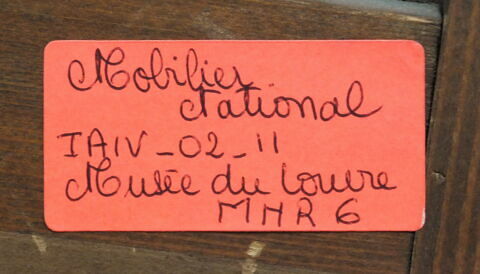 Mobilier
National
IAIV_02_11
Musée du Louvre
MHR 6